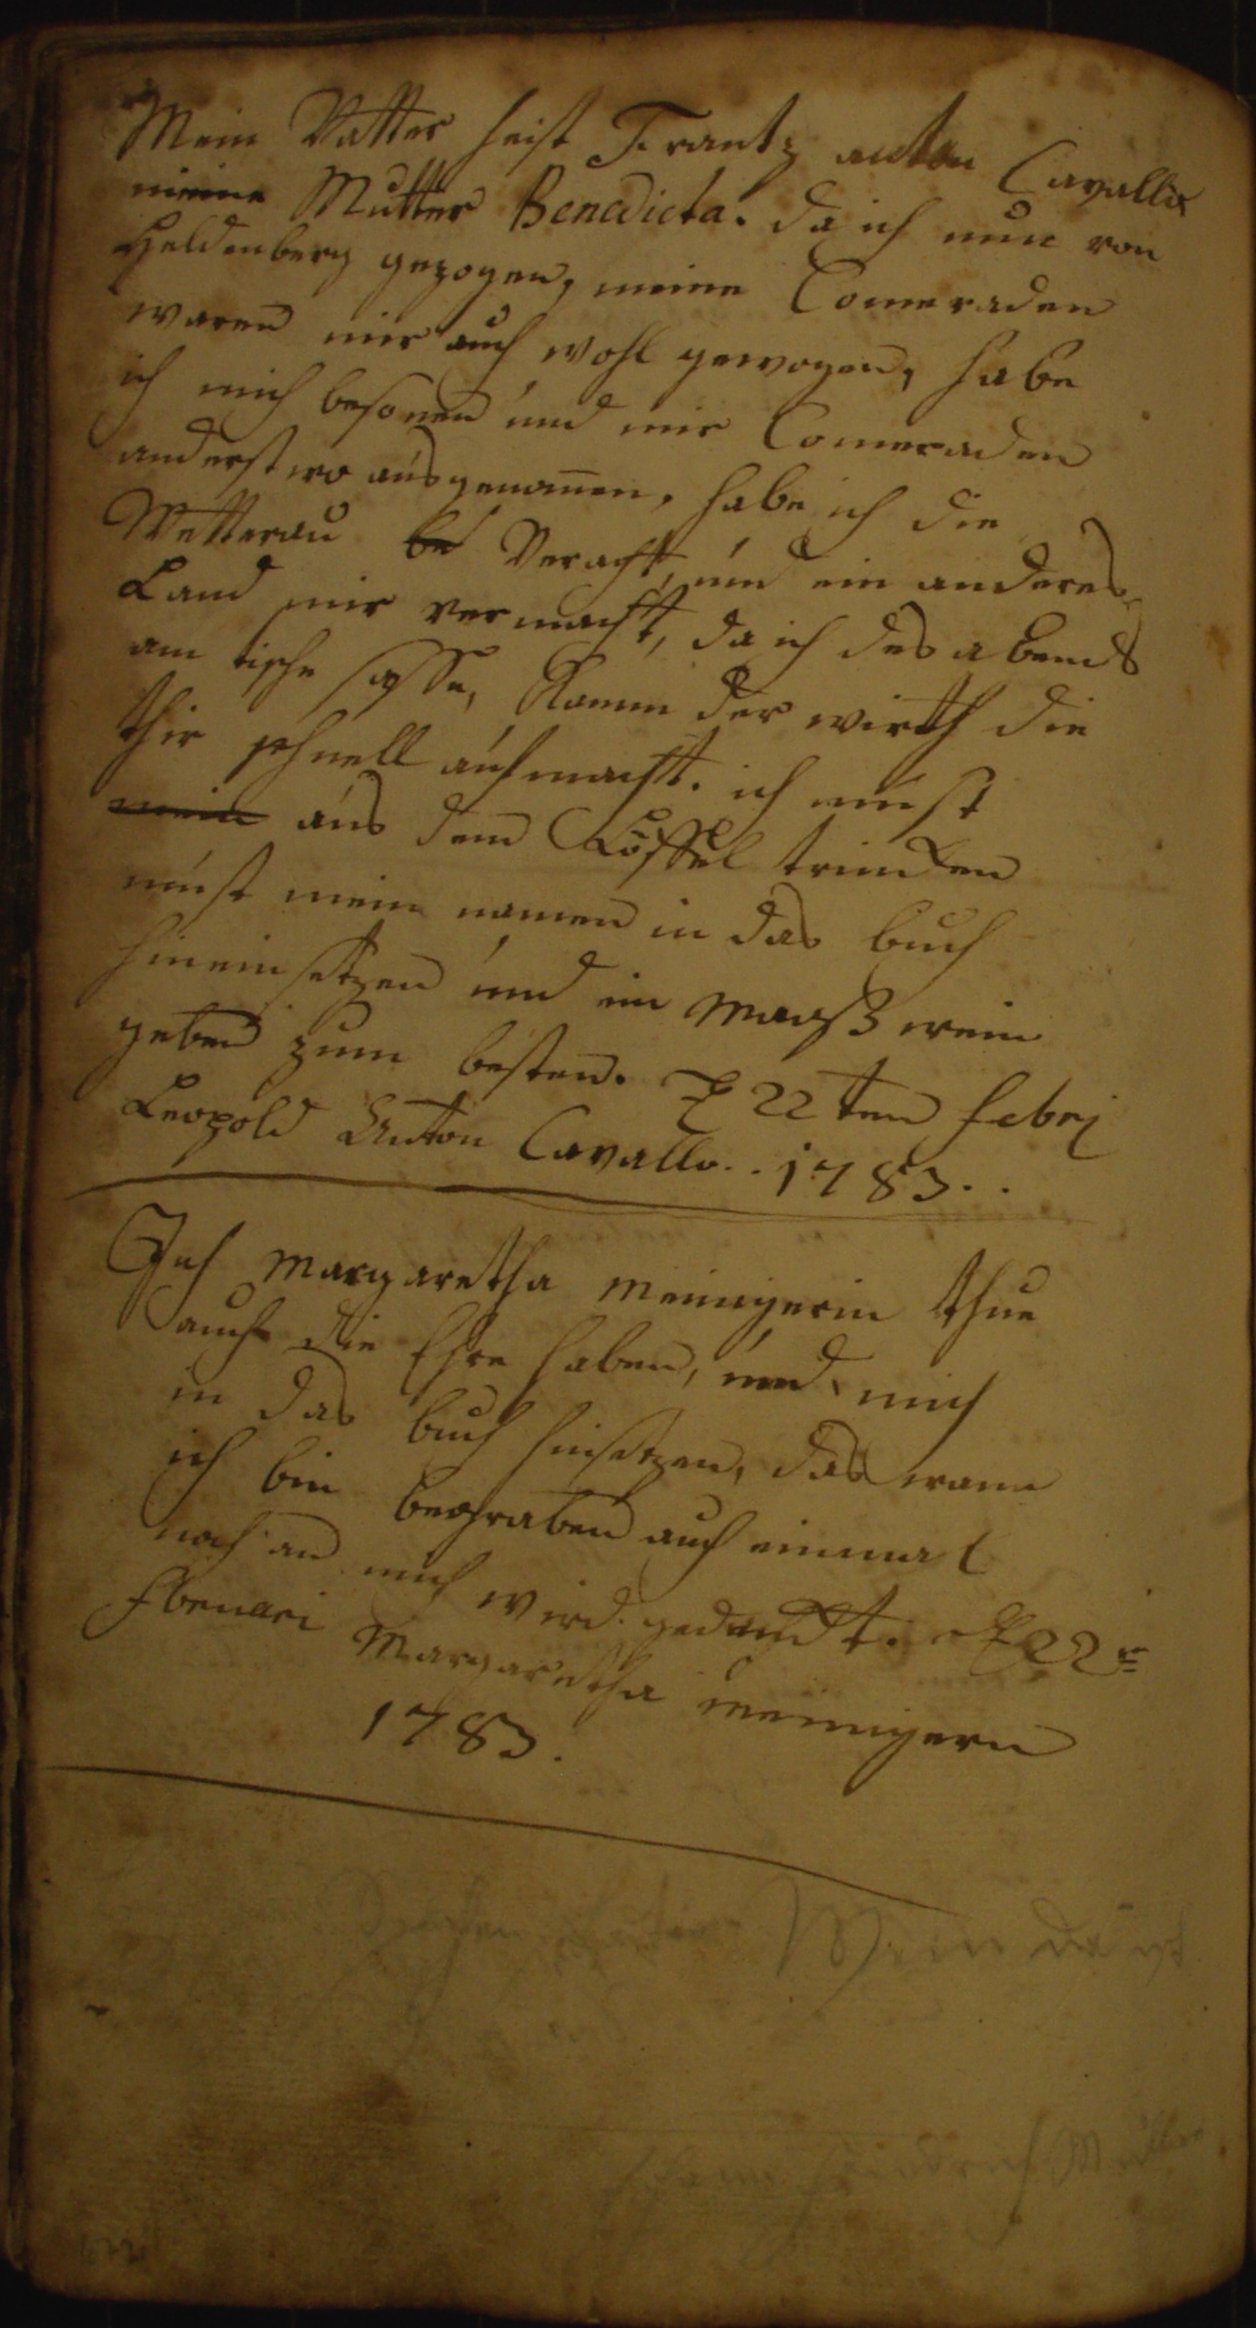 Mein Vatter heist Frantz anton Cavallo
meine Mutter Benedicta. da ich nun von
Heldenberg gezogen, meine Comeraden
waren mir auch wohl gewogen, habe
ich mich besonen und mir Comeraden
anderst wo ausgenom̄en, habe ich die
Wetterau be Veracht, und ein anderes
Land mir vermacht, da ich des abends
am tische sasse, Kamm der wirth die
thir schnell aufmacht. ich must
mein aus dem Löffel trincken
must mein namen in das buch
hinein setzen und ein Maaß wein
geben zum besten. D 22ten febrj
Leopold Anton Cavallo.. 1783..
Ich Margaretha Meinigerin thue
auch die Ehre haben, und mich
in das buch hinsetzen, das wann
ich bin begraben auch einmal
noch an mich wird gedenckt. D 22r
Fbruari Margaretha meinigern
1783.
Wein da ist
Müller